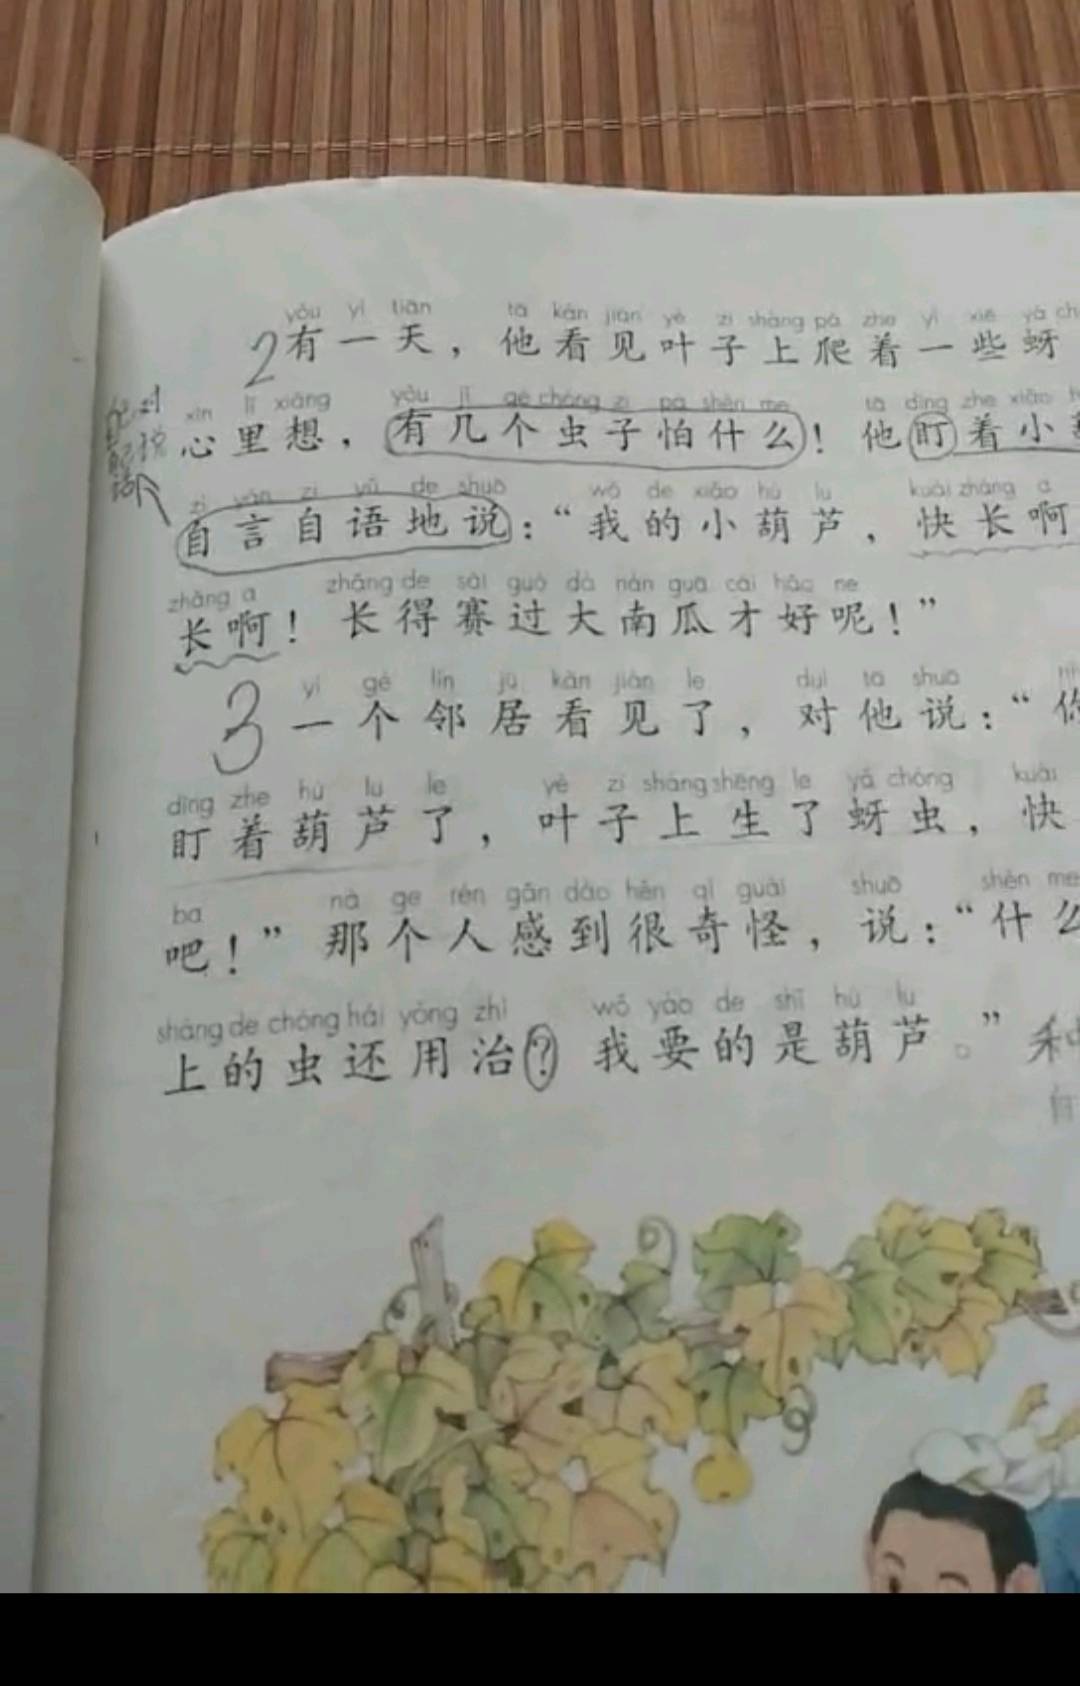 yǒu yì tiān tā kàn jiàn yè zi shàng pá zhe yì xiē yá
2有一天，他看见叶子上爬着一些蚜
xīn lǐ xiǎng yǒu jǐ gè chóng zi pà shén me tā dīng zhe xiǎo
心里想，有几个虫子怕什么！他盯着小
zì yán zì yǔ de shuō wǒ de xiǎo hú lu kuài zhǎng a
自言自语地说：“我的小葫芦，快长啊
zhǎng a zhǎng de sài guò dà nán guā cái hǎo ne
长啊！长得赛过大南瓜才好呢！”
yí gè lín jū kàn jiàn le duì tā shuō
3一个邻居看见了，对他说：“你
dīng zhe hú lu le yè zi shàng shēng le yá chóng kuài
盯着葫芦了，叶子上生了蚜虫，快
ba nà ge rén gǎn dào hěn qí guài shuō shén me
吧！”那个人感到很奇怪，说：“什么
shàng de chóng hái yòng zhì wǒ yào de shì hú lu
上的虫还用治？我要的是葫芦。”